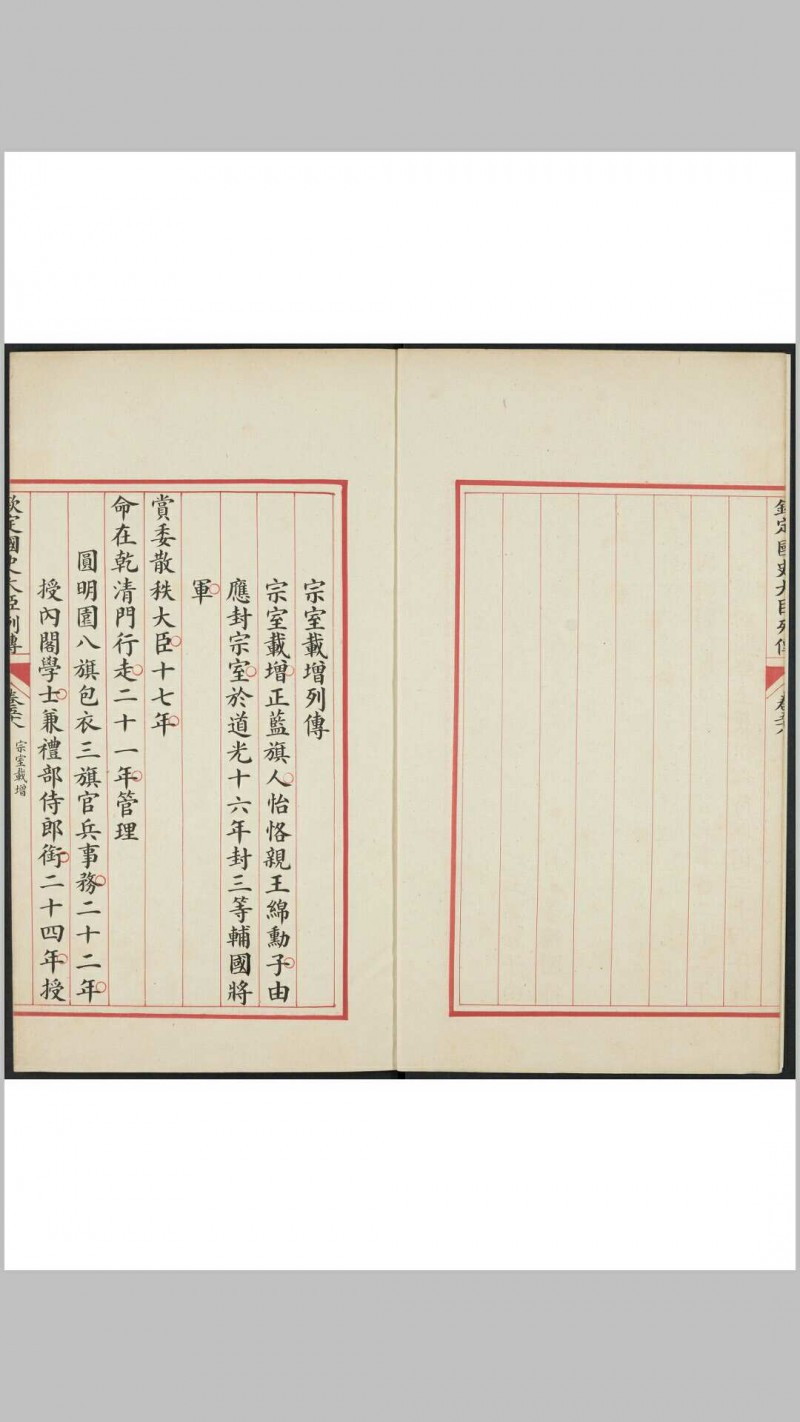 欽定國史大臣列傳 卷
宗室載增列傳
宗室載增正藍旗人怡恪親王綿勳子由
應封宗室於道光十六年封三等輔國將
軍
賞委散秩大臣十七年
命在乾清門行走二十一年管理
圓明園八旗包衣三旗官兵事務二十二年
授內閣學士兼禮部侍郎銜二十四年授
欽定國史大臣列傳 卷 宗室載增